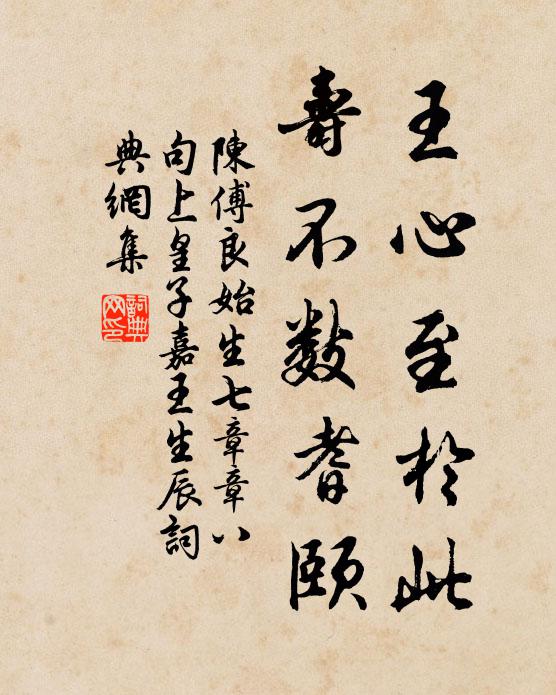 王心至於此
壽不數耆頤
陳傅良始生七章章八
句上皇子嘉王生辰詞
典網集
詞典网印